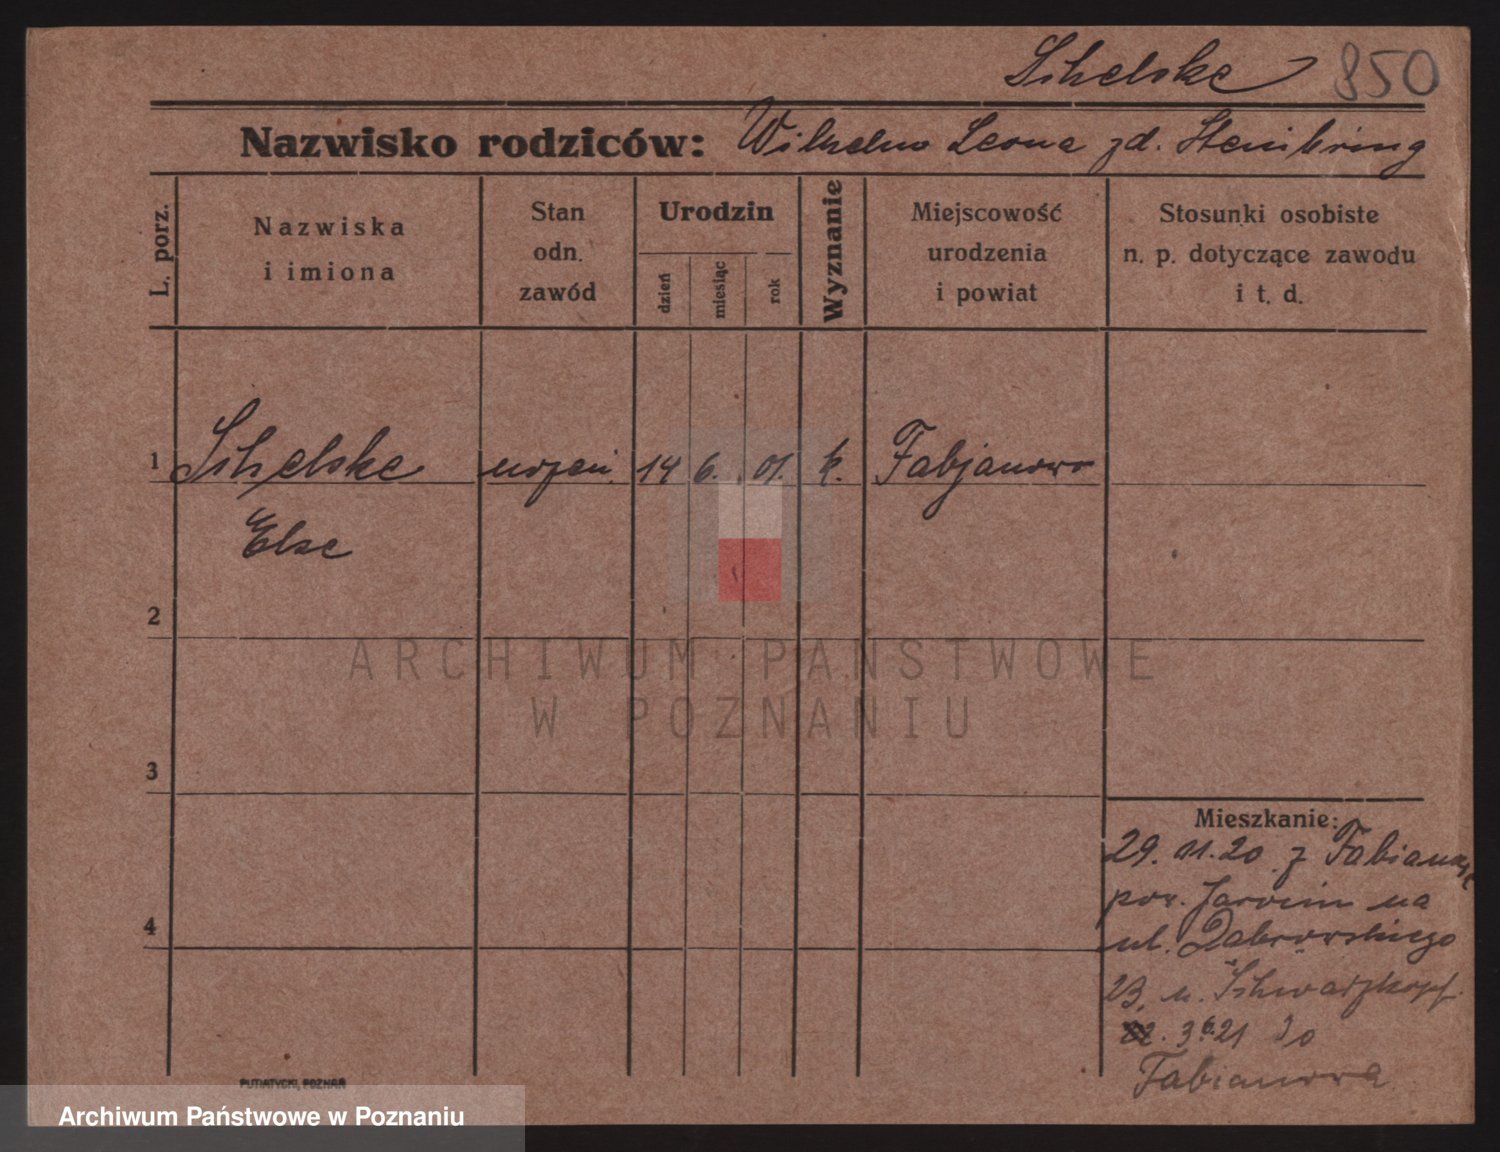 Schelske 850
Nazwisko rodziców: Wilhelm Leona zd. Steinbring
L. porz.
Nazwiska
i imiona
Stan
odn.
zawód
Urodzin
dzień
miesiąc
rok
Wyznanie
Miejscowość
urodzenia
i powiat
Stosunki osobiste
n. p. dotyczące zawodu
i t. d.
1 Schelske 14 6. 01. k. Fabjanowo
Else
2
ARCHIWUM PAŃSTWOWE
W POZNANIU
3
Mieszkanie:
29. 11. 20 z
pow. Jarocin na
4
ul. Dabrowskiego
23, u. Schwarzkopf.
3.6.21 do
Fabianowa
PUTIATYCKI, POZNAŃ
Archiwum Państwowe w Poznaniu